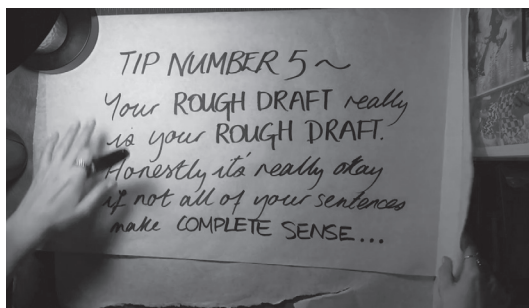 TIP NUMBER 5 ~
Your ROUGH DRAFT really
is your ROUGH DRAFT.
Honestly it's really okay
if not all of your sentences
make COMPLETE SENSE...